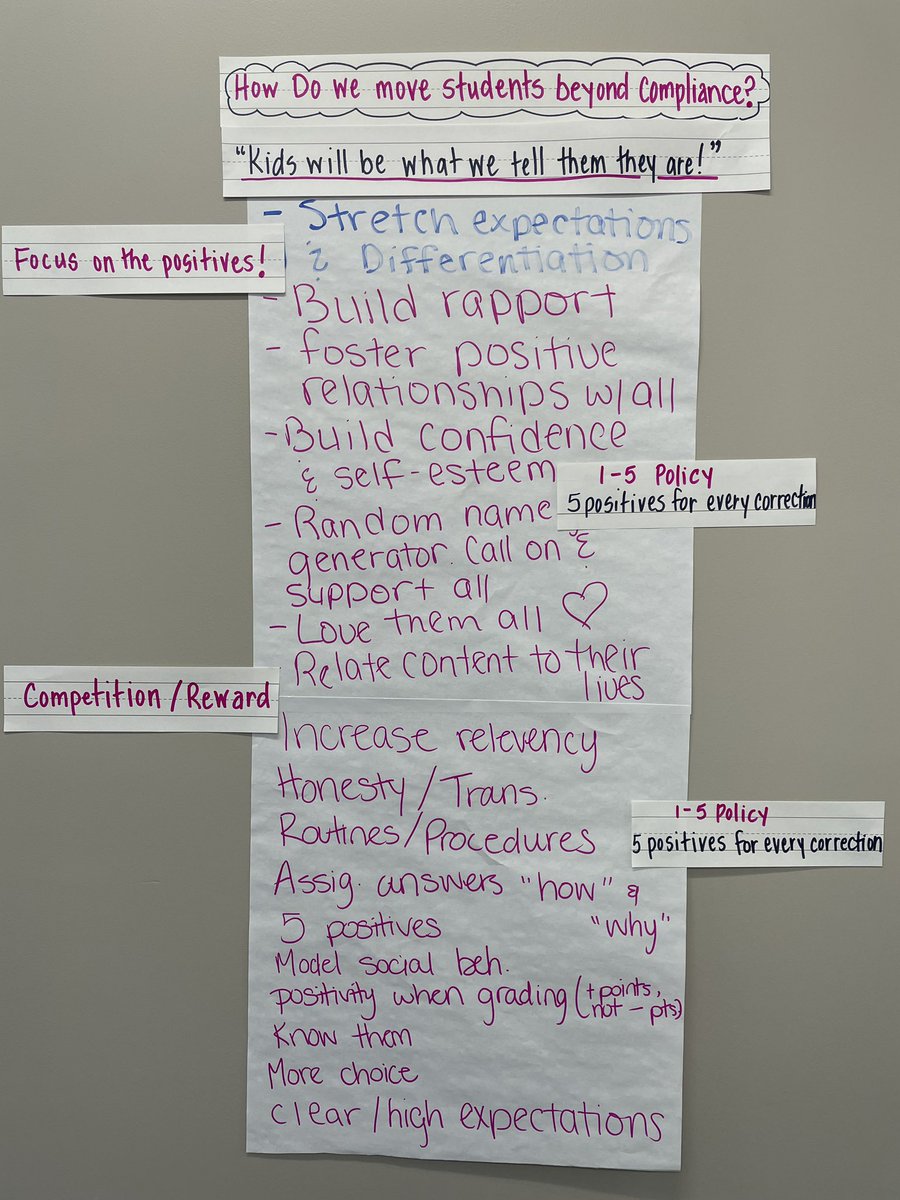 How Do we move students beyond Compliance?
"Kids will be what we tell them they are!"
Focus on the positives!
- Stretch expectations
& Differentiation
- Build rapport
- foster positive
relationships w/all
- Build confidence
& self-esteem
1-5 Policy
5 positives for every correction
- Random name
generator. Call on &
support all
- Love them all ♡
Relate content to their
lives
Competition/Reward
Increase relevency
Honesty/Trans.
Routines/Procedures
1-5 Policy
5 positives for every correction
Assig. answers "how" &
5 positives "why"
Model social beh.
positivity when grading (+points,
not - pts)
Know them
More choice
clear/high expectations